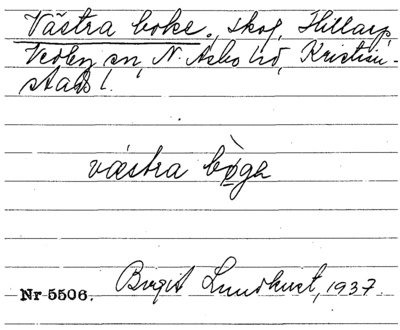 Västra boke, skog, Hillarp,
Vedby sn, N. Åsbo hd, Kristian-
stads l.
västra bògh
Nr 5506. Birgit Lundkvist, 1937.